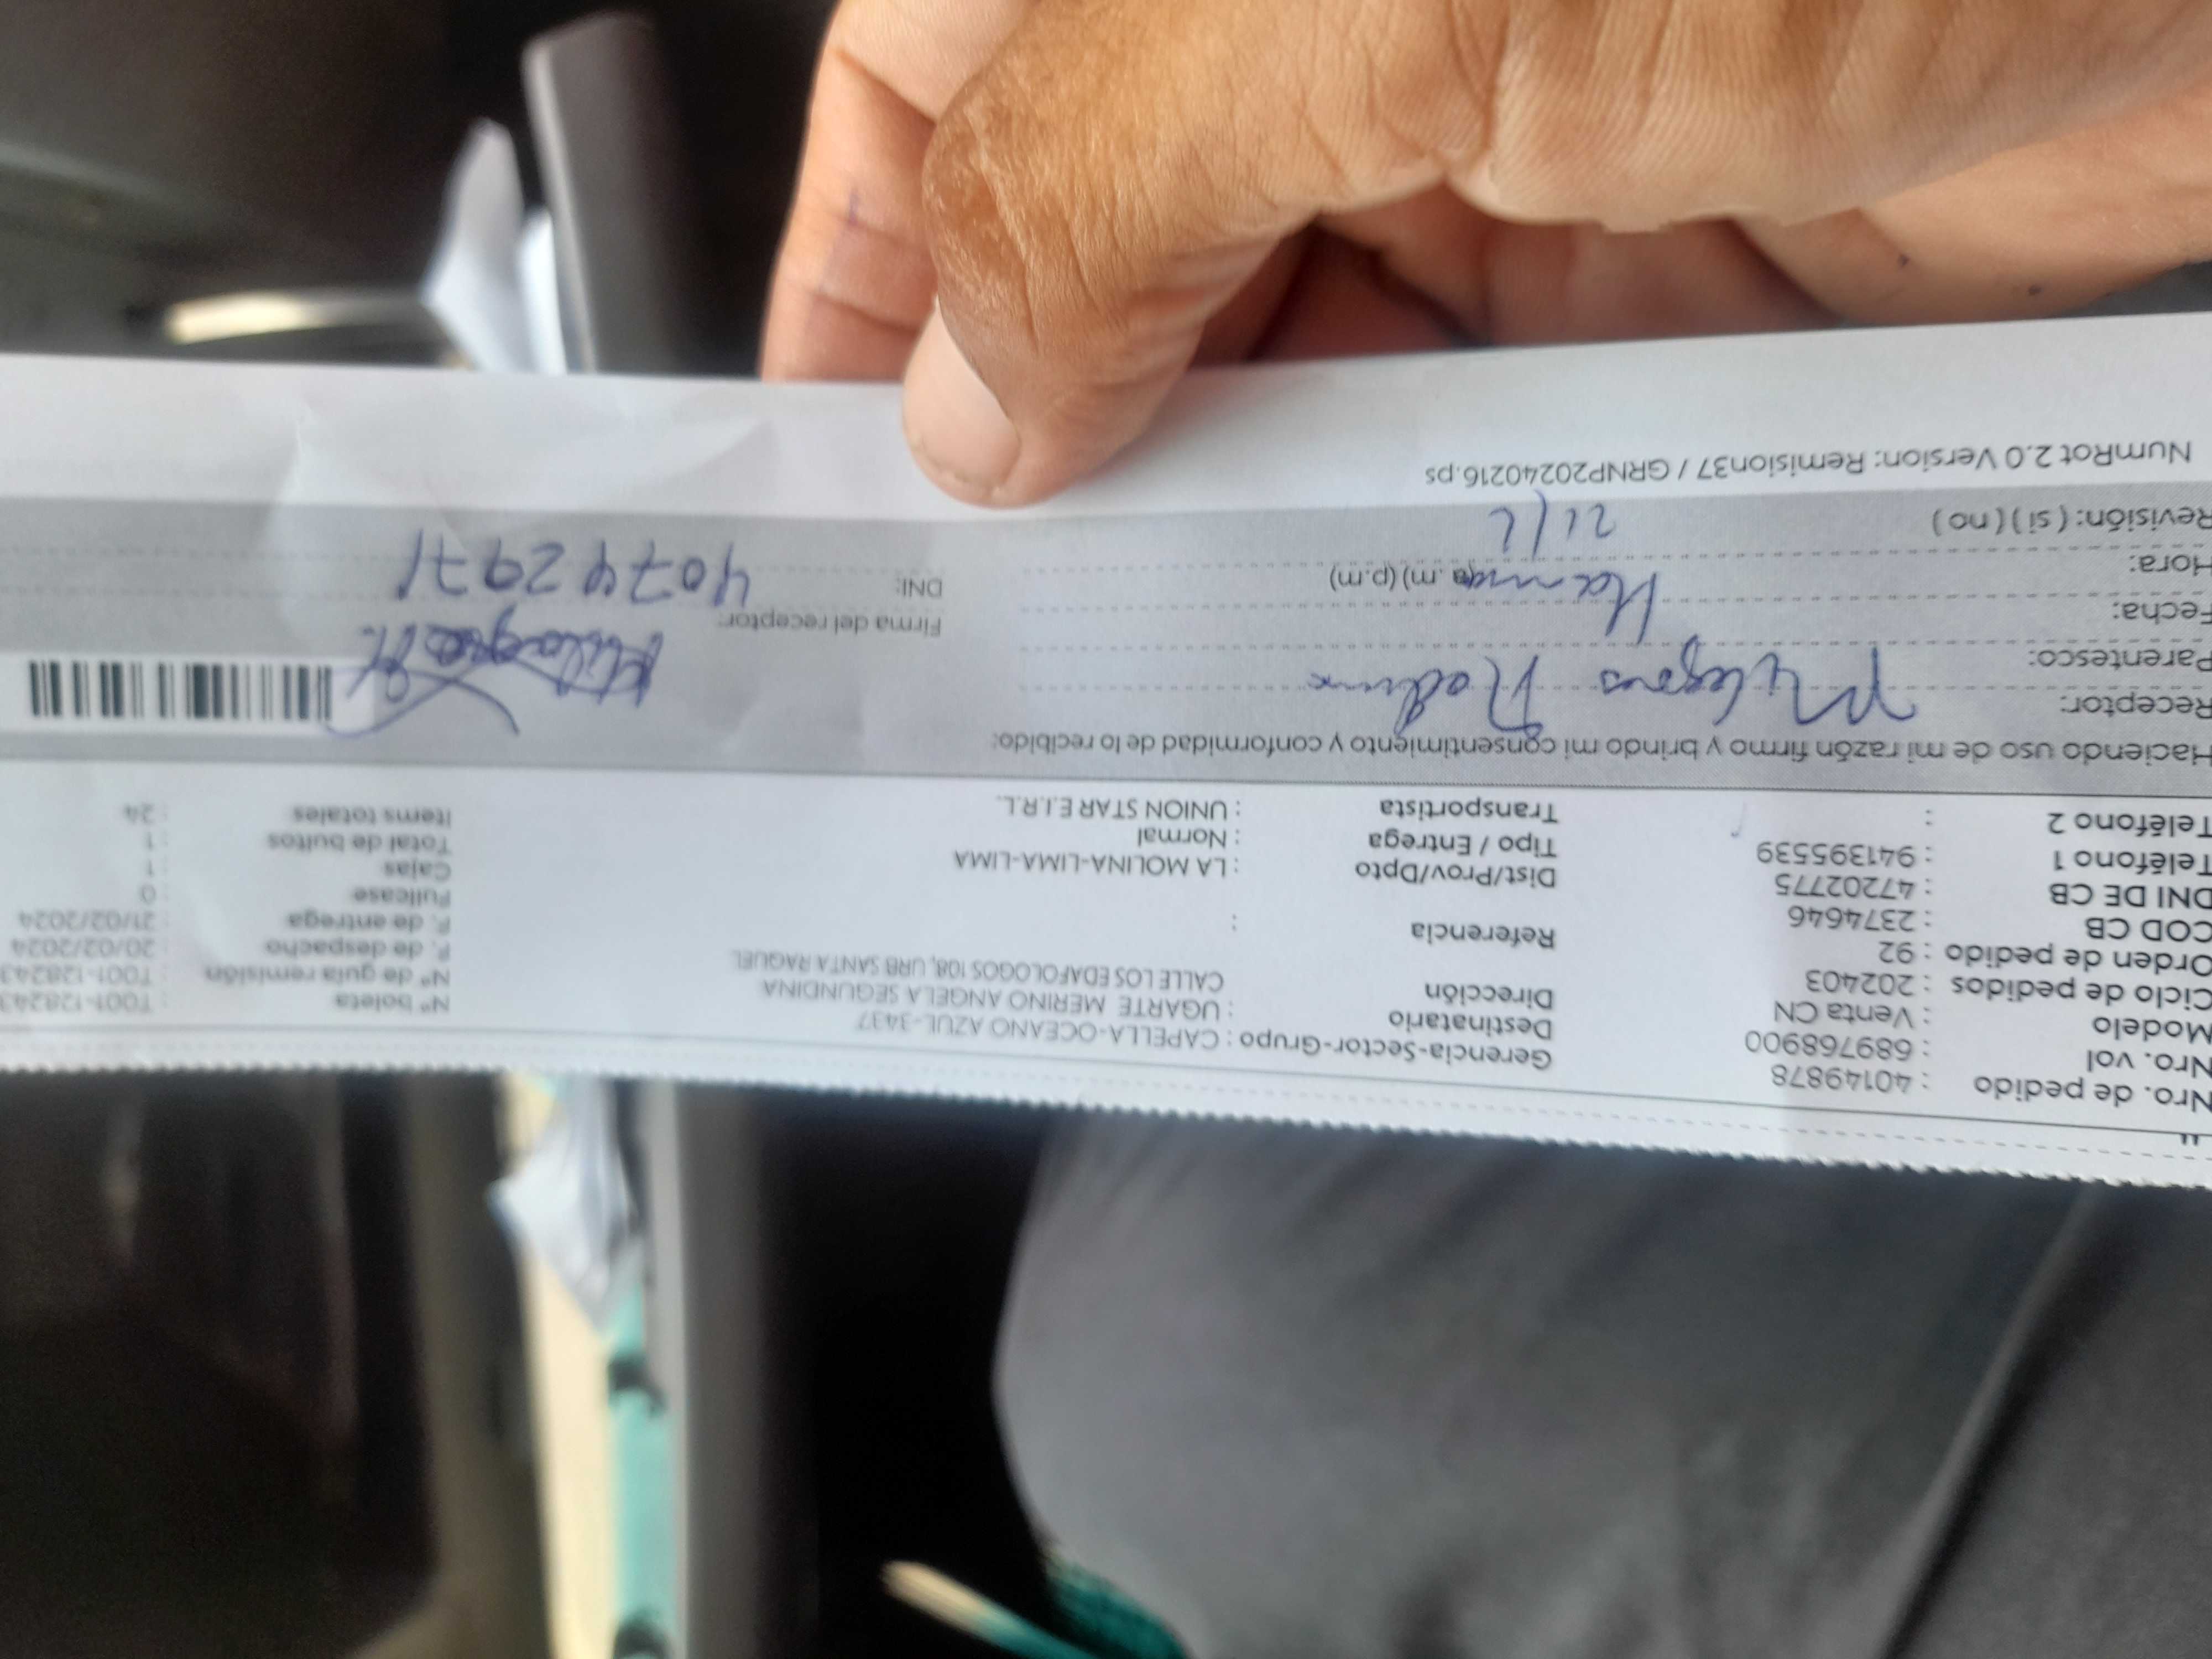 Nro. de pedido : 40149878
Nro. vol : 689768900
Modelo : Venta CN
Ciclo de pedidos : 202403
Orden de pedido : 92
COD CB : 2374646
DNI DE CB : 47202775
Teléfono 1 : 941395539
Teléfono 2 :
Gerencia-Sector-Grupo : CAPELLA-OCEANO AZUL-3437
Destinatario : UGARTE MERINO ANGELA SEGUNDINA
Dirección CALLE LOS EDAFOLOGOS 108, URB SANTA RAQUEL
Referencia :
Dist/Prov/Dpto : LA MOLINA-LIMA-LIMA
Tipo / Entrega : Normal
Transportista : UNION STAR E.I.R.L.
Nº boleta : T001-128243
Nº de guía remisión : T001-128243
F. de despacho : 20/02/2024
F. de entrega : 21/02/2024
Fullcase : 0
Cajas : 1
Total de bultos : 1
Items totales : 24
Haciendo uso de mi razón firmo y brindo mi consentimiento y conformidad de lo recibido:
Receptor: Milagros
Parentesco:
Fecha:
Hora: (a.m) (p.m)
Revisión: ( si ) ( no ) 21/2
Firma del receptor:
DNI: 40742971
NumRot 2.0 Version: Remision37 / GRNP20240216.ps